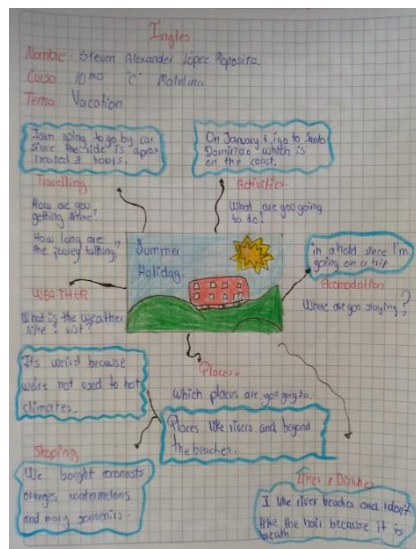 Ingles
Nombre: Steven Alexander López Moposita.
Curso 10mo "C" Matutina
Tema: Vacation
I am going to go by car
since the ride is aprox
imated 3 hours.
On January 6, i go to Santo
Domingo which is
on the coast.
Travelling
How are you
getting there?
How long are
the jouney talking?
Activities
What are you going
to do?
Summer
Holiday.
in a hold since I'm
going on a trip
Acomodation
Where are you staying?
WEATHER
What is the weather
like?
It's weird because
we're not used to hot
climates.
Places
Which places are you going to.
Places like rivers and beyond
the beaches.
Shoping
We bought
oranges watermelons
and many sovenirs.
Likes y Donkes
I like river beaches and I don't
like the because it is